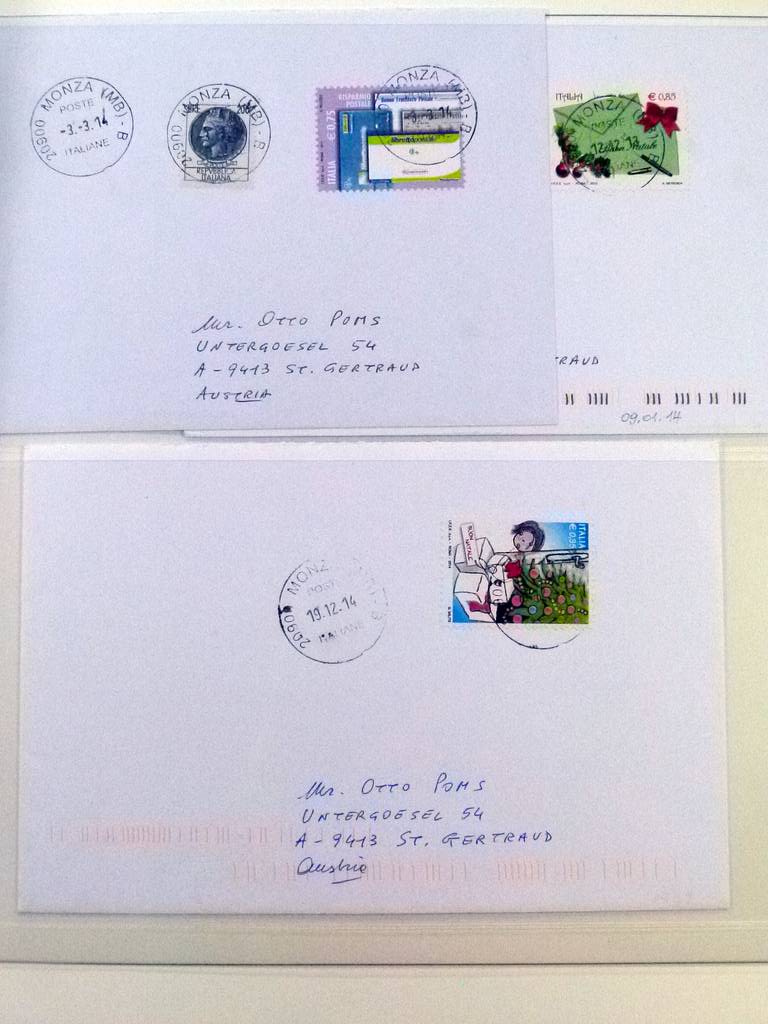 20900 MONZA (MB) - B
POSTE
-3.-3.14
ITALIANE
20900 MONZA (MB) - B
REPUBBLICA
ITALIANA
RISPARMIO
POSTALE
ITALIA € 0,75
MONZA (MB) - B
-3.-3.14
Mr. OTTO POMS
UNTERGOESEL 54
A-9413 ST. GERTRAUD
AUSTRIA
ITALIA € 0,85
MONZA
POSTE
12.12.13
Buon Natale
RAUD
09.01.14
20900 MONZA (MB) - B
POSTE
19.12.14
ITALIANE
ITALIA
€ 0,95
BUON
NATALE
Mr. OTTO POMS
UNTERGOESEL 54
A-9413 ST. GERTRAUD
Austria